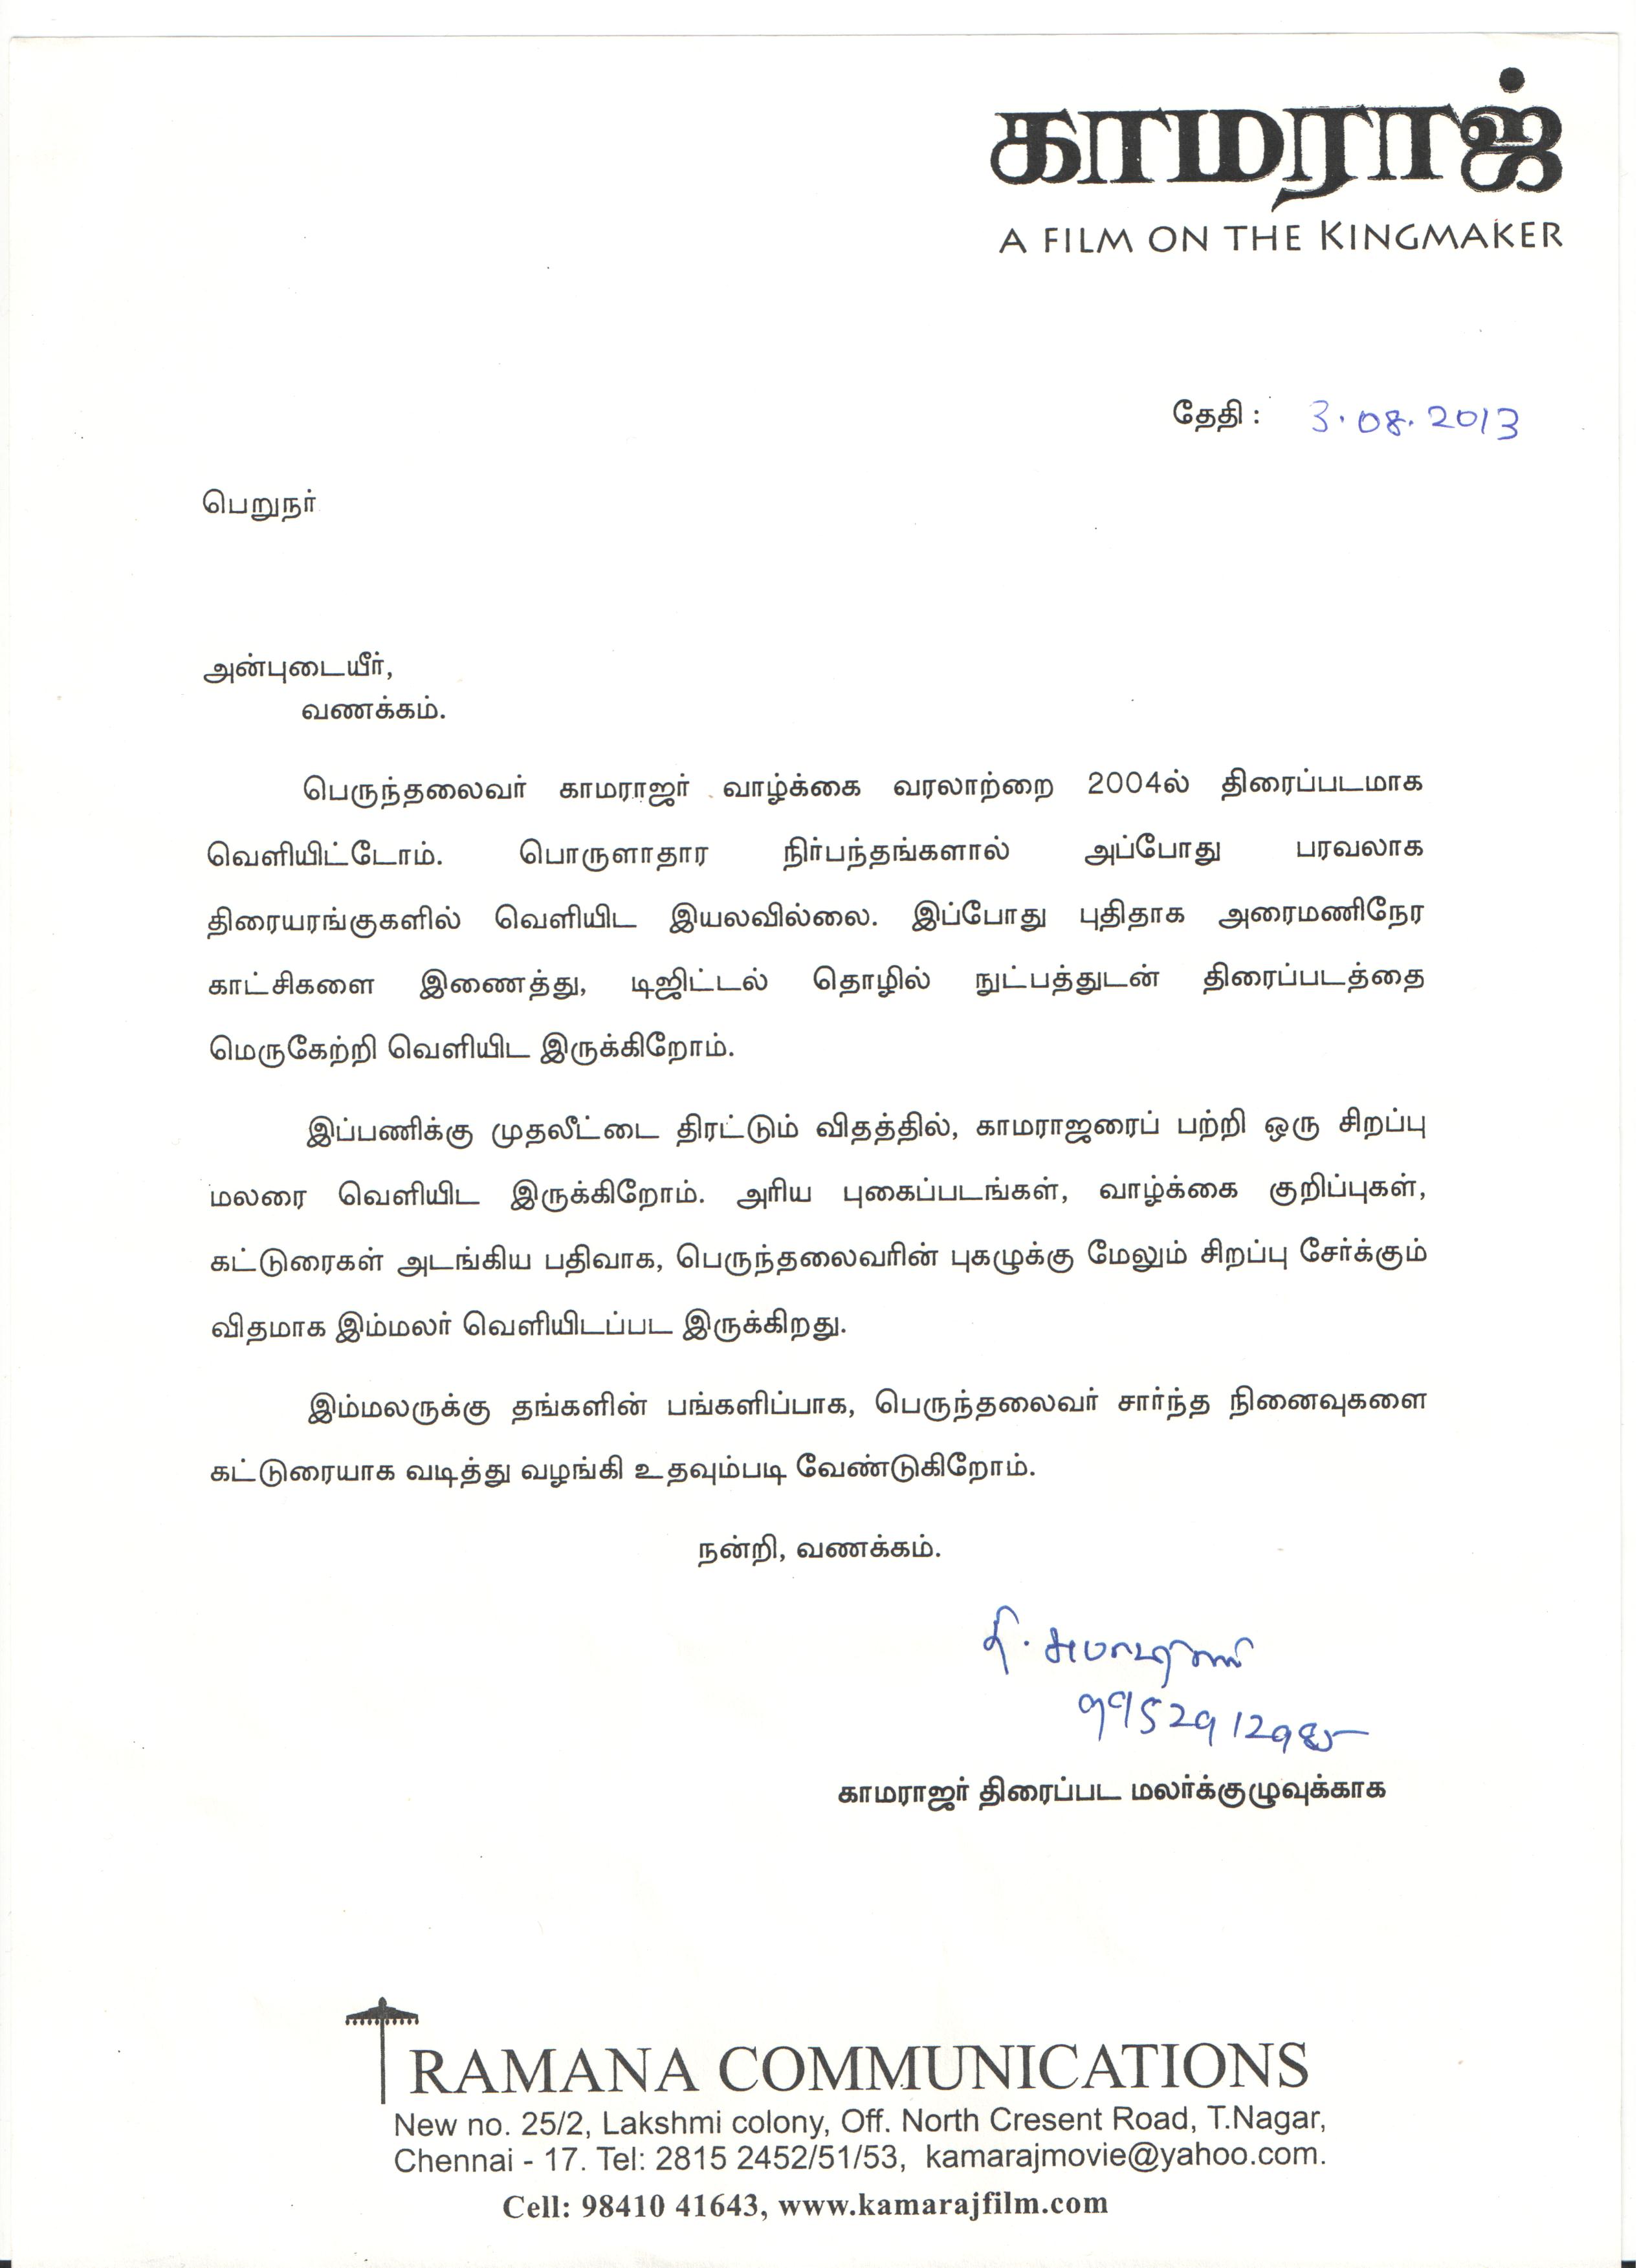 காமராஜ்
A FILM ON THE KINGMAKER
தேதி : 3.08.2013
பெறுநர்
அன்புடையீர்,
வணக்கம்.
பெருந்தலைவர் காமராஜர் வாழ்க்கை வரலாற்றை 2004ல் திரைப்படமாக
வெளியிட்டோம். பொருளாதார நிர்பந்தங்களால் அப்போது பரவலாக
திரையரங்குகளில் வெளியிட இயலவில்லை. இப்போது புதிதாக அரைமணிநேர
காட்சிகளை இணைத்து, டிஜிட்டல் தொழில் நுட்பத்துடன் திரைப்படத்தை
மெருகேற்றி வெளியிட இருக்கிறோம்.
இப்பணிக்கு முதலீட்டை திரட்டும் விதத்தில், காமராஜரைப் பற்றி ஒரு சிறப்பு
மலரை வெளியிட இருக்கிறோம். அரிய புகைப்படங்கள், வாழ்க்கை குறிப்புகள்,
கட்டுரைகள் அடங்கிய பதிவாக, பெருந்தலைவரின் புகழுக்கு மேலும் சிறப்பு சேர்க்கும்
விதமாக இம்மலர் வெளியிடப்பட இருக்கிறது.
இம்மலருக்கு தங்களின் பங்களிப்பாக, பெருந்தலைவர் சார்ந்த நினைவுகளை
கட்டுரையாக வடித்து வழங்கி உதவும்படி வேண்டுகிறோம்.
நன்றி, வணக்கம்.
காமராஜர் திரைப்பட மலர்க்குழுவுக்காக
RAMANA COMMUNICATIONS
New no. 25/2, Lakshmi colony, Off. North Cresent Road, T.Nagar,
Chennai - 17. Tel: 2815 2452/51/53, kamarajmovie@yahoo.com.
Cell: 98410 41643, www.kamarajfilm.com